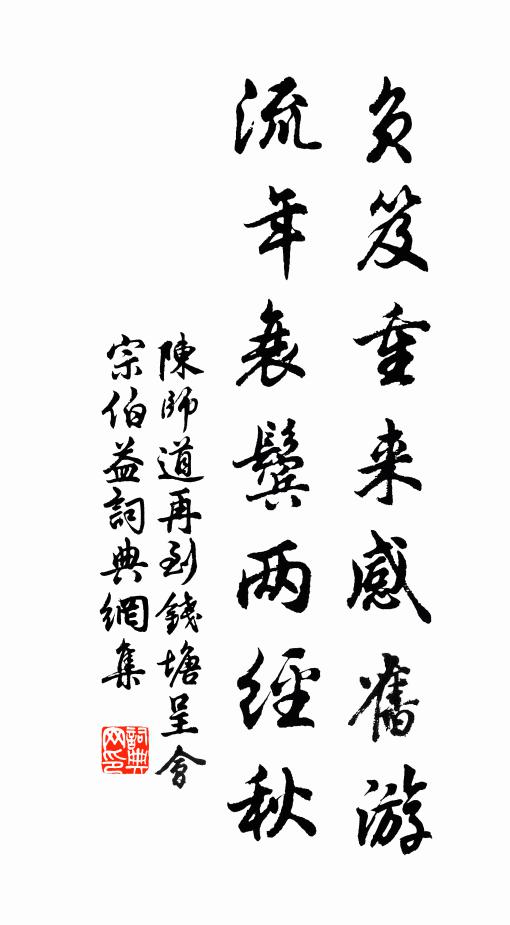 负笈重来感舊游
流年衰鬓两經秋
陳師道再到錢塘呈會
宗伯益詞典網集
詞典网印